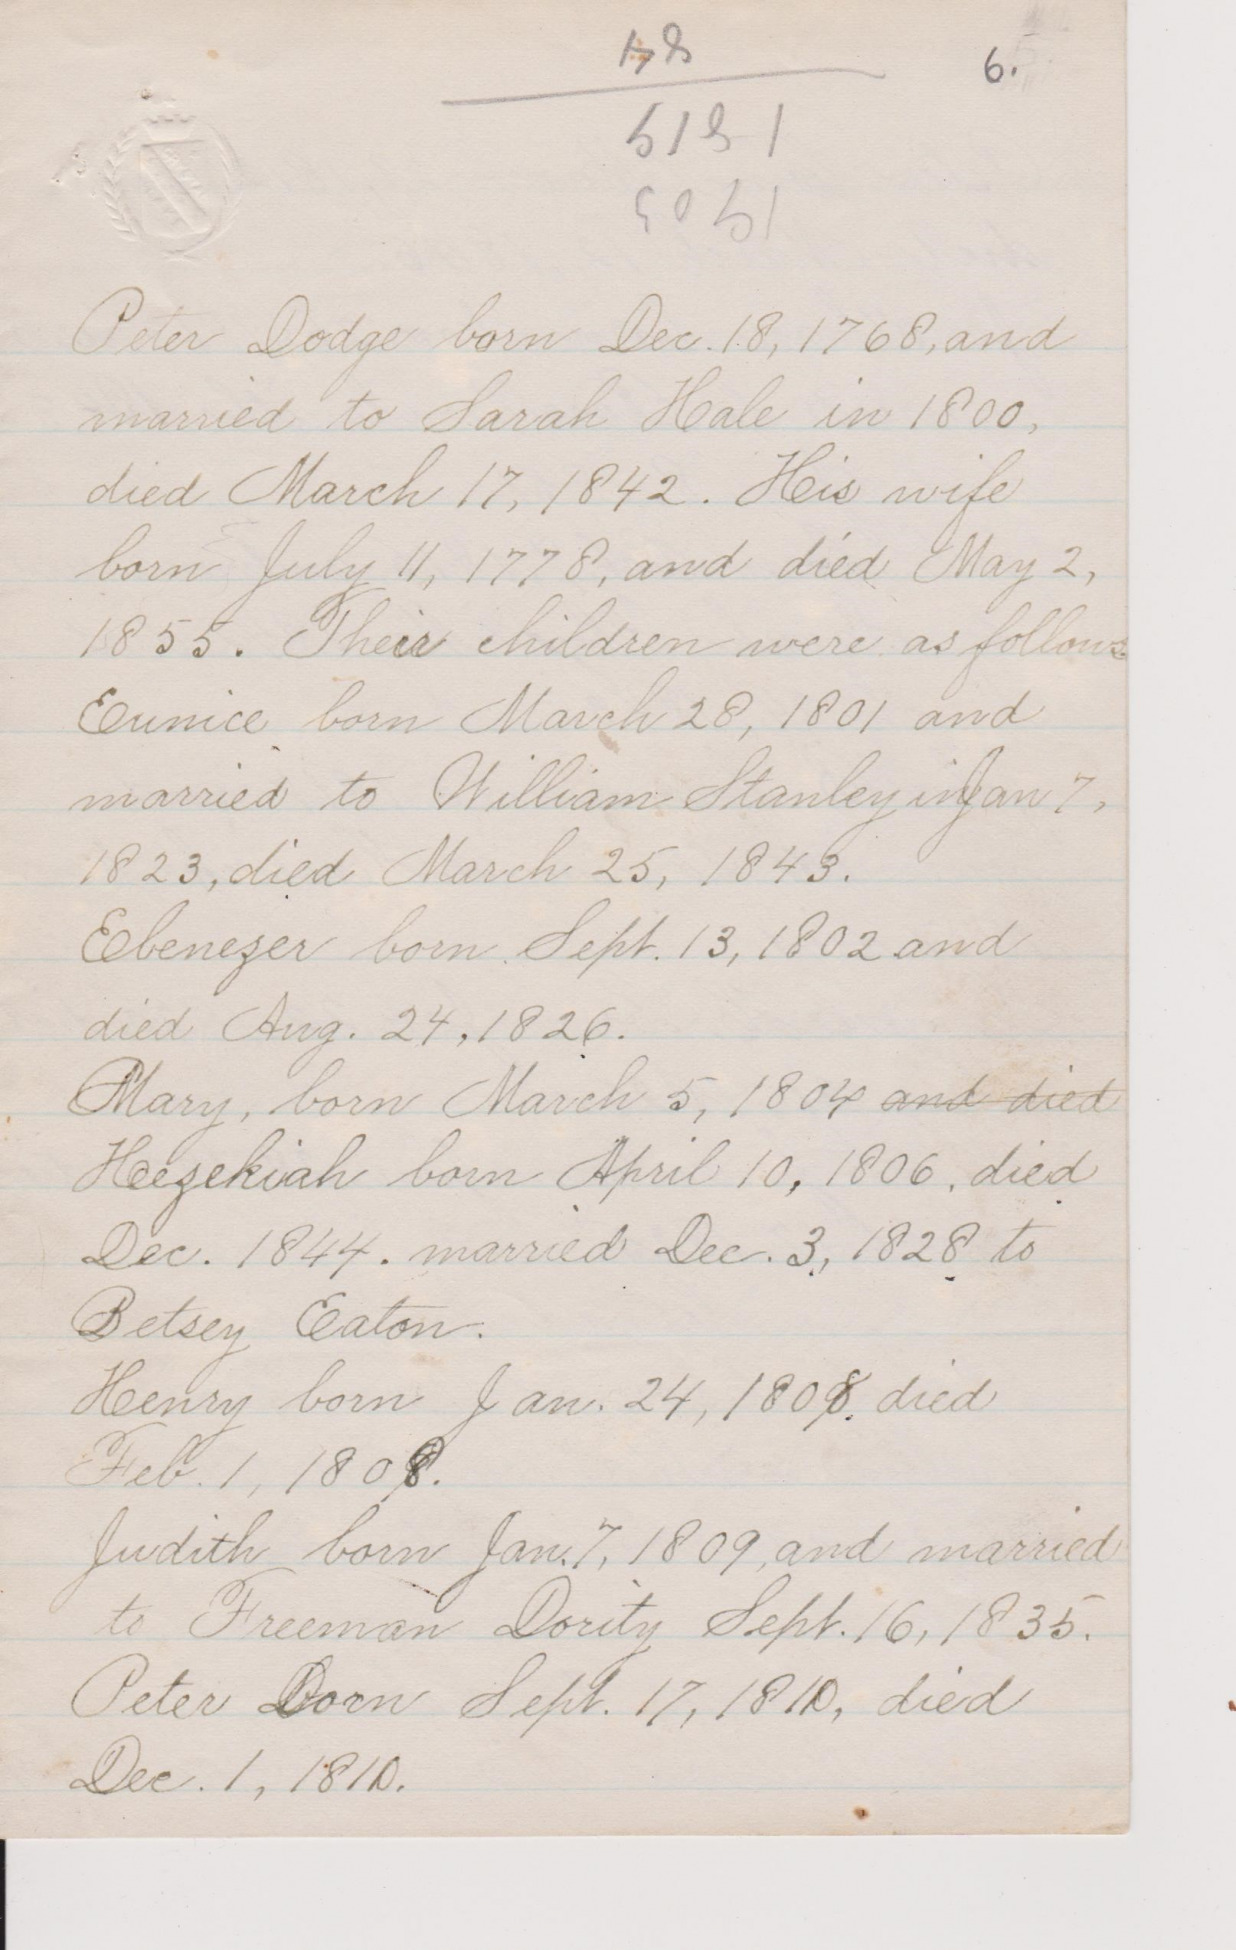 6.
1903
1819
84
Peter Dodge born Dec. 18, 1768, and
married to Sarah Hale in 1800,
died March 17, 1842. His wife
born July 11, 1778, and died May 2,
1855. Their children were as follows
Eunice born March 28, 1801 and
married to William Stanley in Jan 7,
1823, died March 25, 1843.
Ebenezer born Sept. 13, 1802 and
died Aug. 24, 1826.
Mary, born March 5, 1804 and died
Hezekiah born April 10, 1806, died
Dec. 1844. married Dec. 3, 1828 to
Betsey Eaton.
Henry born Jan. 24, 1808. died
Feb. 1, 1808.
Judith born Jan. 7, 1809, and married
to Freeman Dority Sept. 16, 1835.
Peter Born Sept. 17, 1810, died
Dec. 1, 1810.